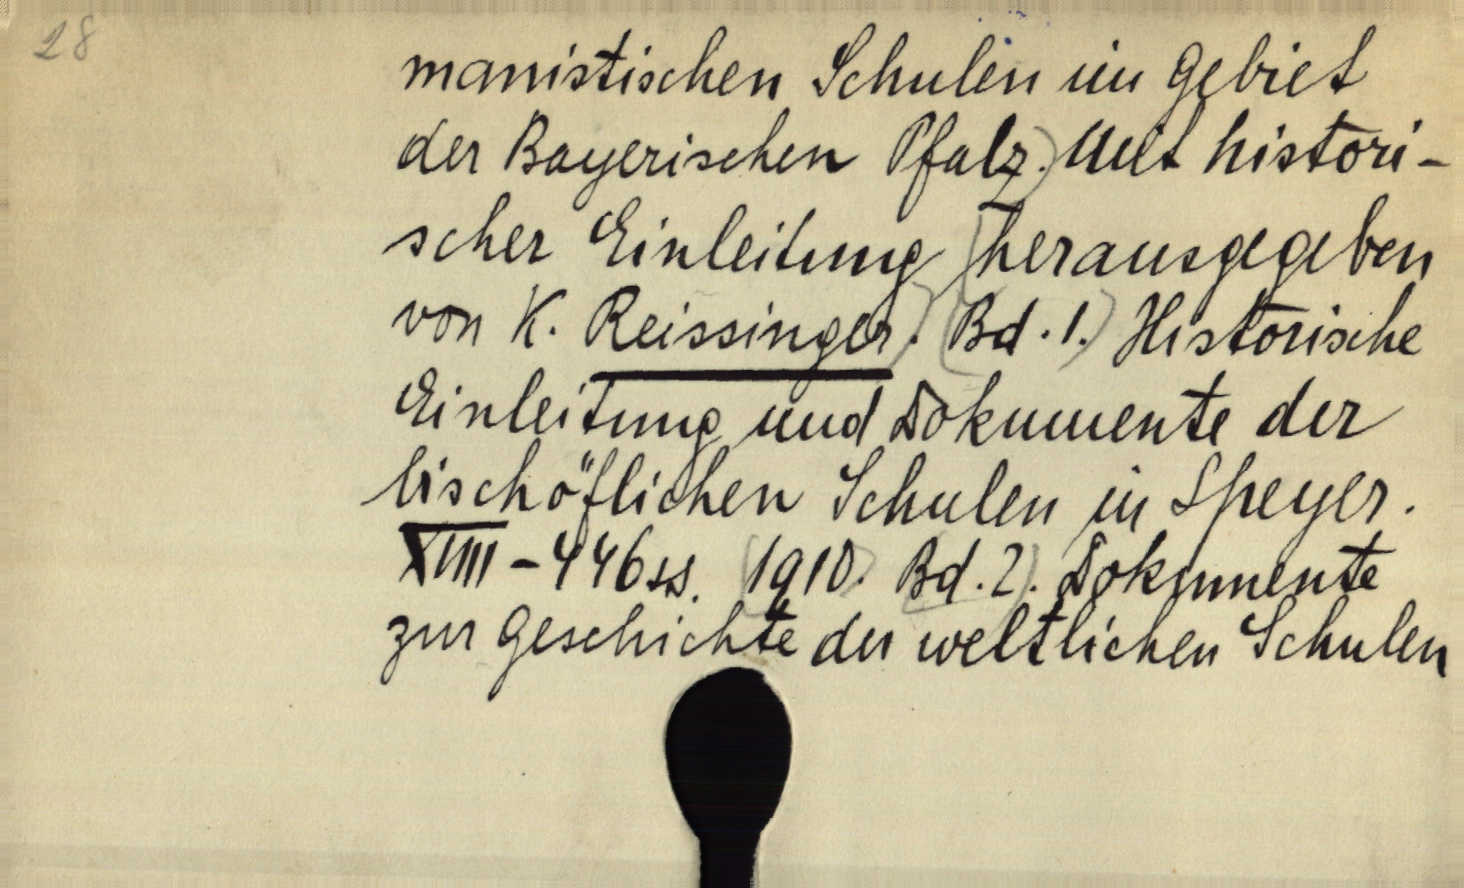 28
manistischen Schulen im Gebiet
der Bayerischen Pfalz. Mit histori-
scher Einleitung herausgegeben
von K. Reissinger. (Bd. 1.) Historische
Einleitung und Dokumente der
bischöflichen Schulen in Speyer.
XIIII - 446 ss. (1910). Bd. 2). Dokumente
zur Geschichte der weltlichen Schulen